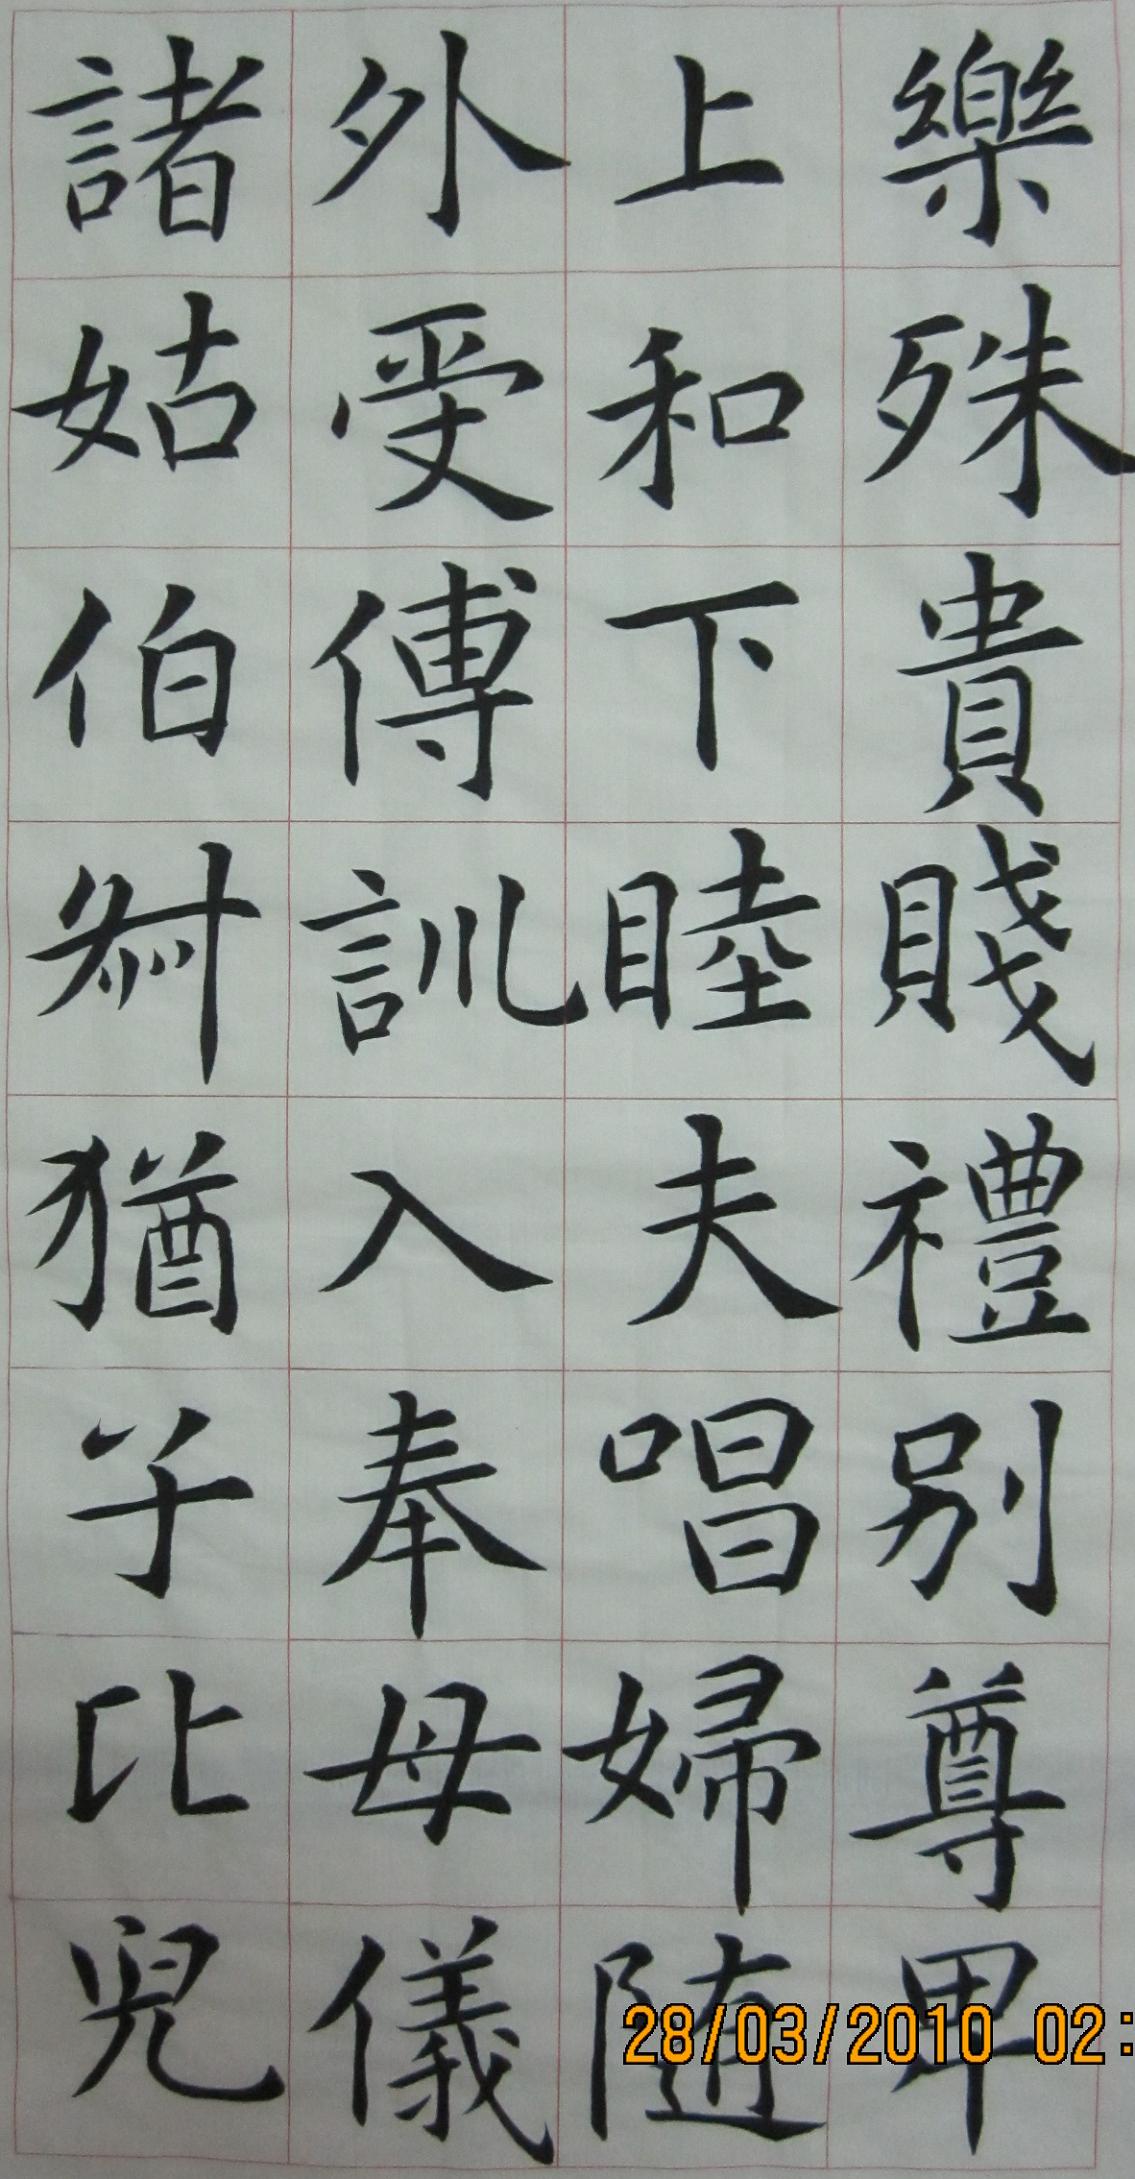 樂殊貴賤禮別尊卑
上和下睦夫唱婦随
外受傅訓入奉母儀
諸姑伯叔猶子比兒
28/03/2010 02: